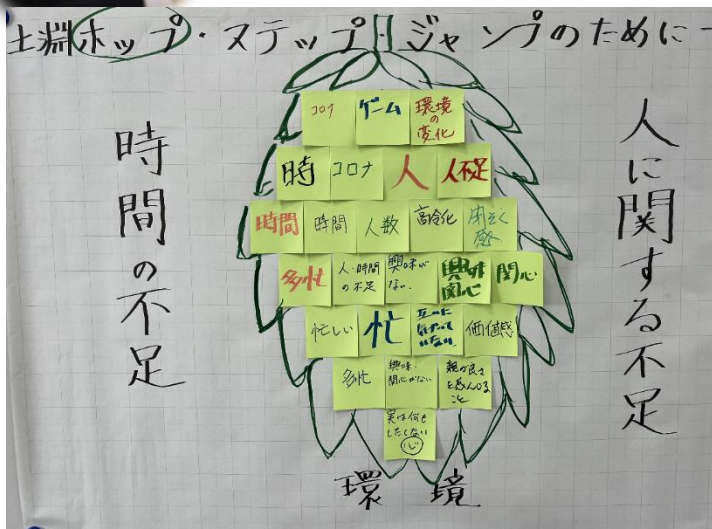 土淵ホップ・ステップ・ジャンプのために
時間の不足
人に関する不足
コロナ
ゲーム
環境
の
変化
時
コロナ
人
人不足
時間
時間
人数
高令化
多忙
人・時間
の不足
興味が
ない
興味
関心
関心
忙しい
忙
価値感
多忙
興味・
関心がない
親が良さ
を感んじる
こと
実は何も
したくない
環境